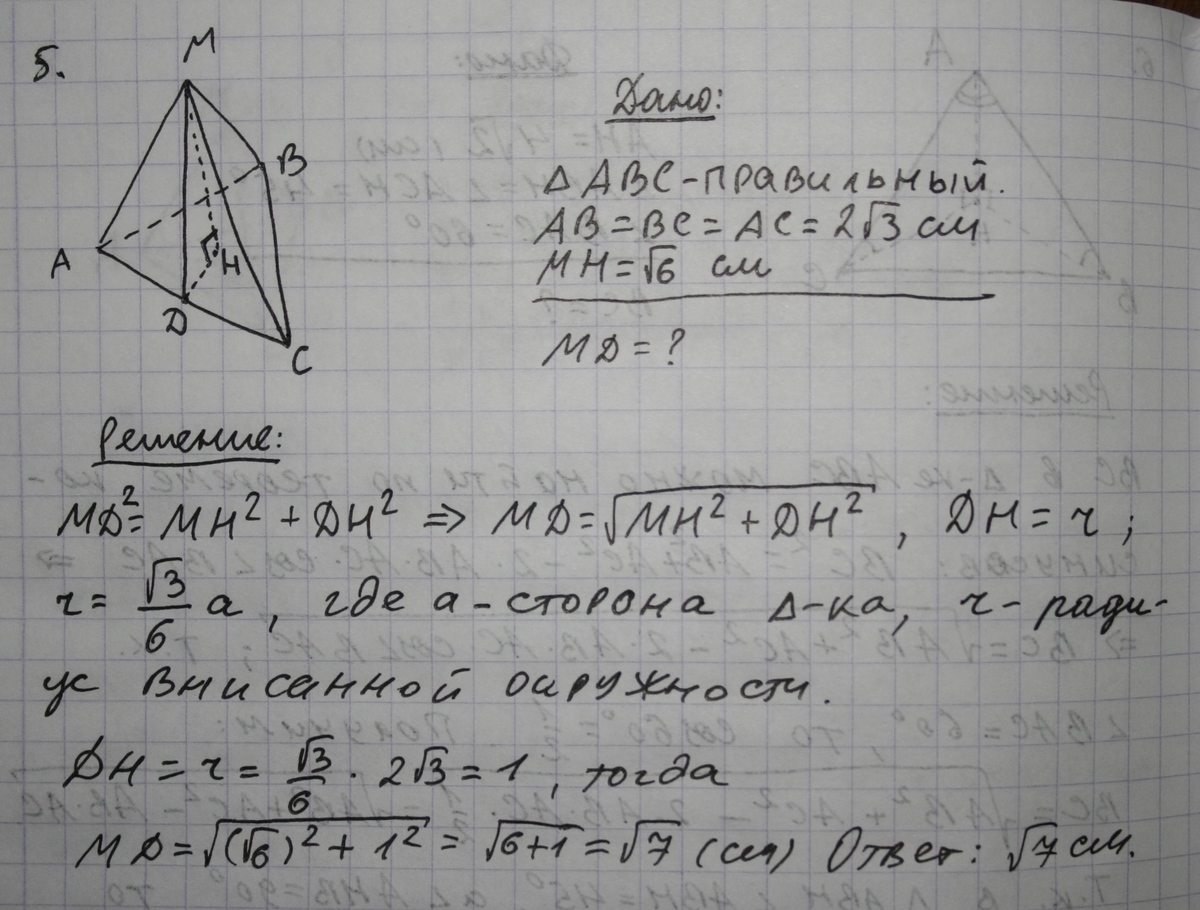 5.
M
B
A
H
D
C
Дано:
Δ ABC - правильный.
AB = BC = AC = 2√3 см
MH = √6 см
MD = ?
Решение:
MD² = MH² + DH² ⇒ MD = √(MH² + DH²) , DH = r ;
r = √3/6 a , где a - сторона Δ-ка, r - ради-
ус вписанной окружности.
DH = r = √3/6 · 2√3 = 1 , тогда
MD = √((√6)² + 1²) = √(6+1) = √7 (см) Ответ: √7 см.